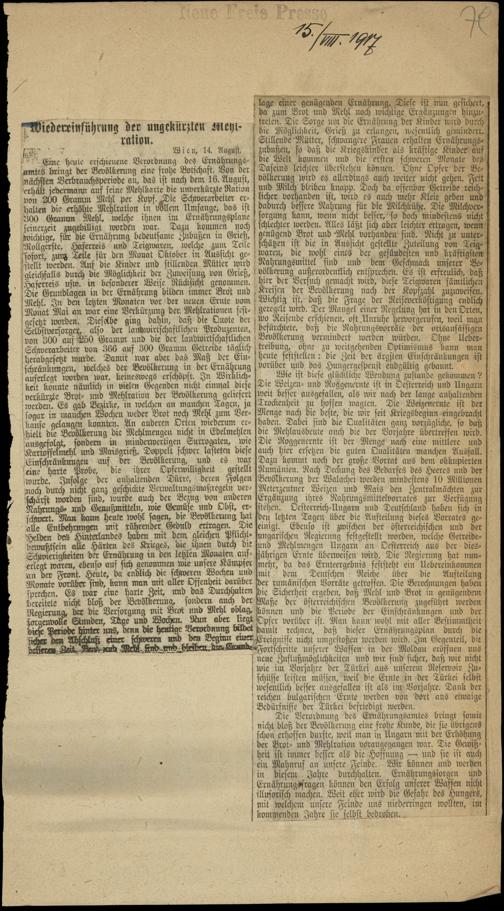 Neue Freie Presse
15./VIII. 1917
Wiedereinführung der ungekürzten Mehl-
ration.
Wien, 14. August.
Eine heute erschienene Verordnung des Ernährungs-
amtes bringt der Bevölkerung eine frohe Botschaft. Von der
nächsten Verbrauchsperiode an, das ist nach dem 16. August,
erhält jedermann auf seine Mehlkarte die unverkürzte Ration
von 200 Gramm Mehl per Kopf. Die Schwerarbeiter er-
halten die erhöhte Mehlration in vollem Umfange, das ist
300 Gramm Mehl, welche ihnen im Ernährungsplane
seinerzeit zugebilligt worden war. Dazu kommen noch
wichtige, für die Ernährung bedeutsame Zubußen in Grieß,
Rollgerste, Haferreis und Teigwaren, welche zum Teile
sofort, zum Teile für den Monat Oktober in Aussicht ge-
stellt werden. Auf die Kinder und stillenden Mütter wird
gleichfalls durch die Möglichkeit der Zuweisung von Grieß,
Haferreis usw. in besonderer Weise Rücksicht genommen.
Die Grundlagen in der Ernährung bilden immer Brot und
Mehl. In den letzten Monaten vor der neuen Ernte vom
Monat Mai an war eine Verkürzung der Mehlrationen fest-
gesetzt worden. Dieselbe ging dahin, daß die Quote der
Selbstversorger, also der landwirtschaftlichen Produzenten,
von 300 auf 250 Gramm und die der landwirtschaftlichen
Schwerarbeiter von 366 auf 300 Gramm Getreide täglich
herabgesetzt wurde. Damit war aber das Maß der Ein-
schränkungen, welches der Bevölkerung in der Ernährung
auferlegt worden war, keineswegs erschöpft. In Wirklich-
keit konnte nämlich in vielen Gegenden nicht einmal diese
verkürzte Brot- und Mehlration der Bevölkerung geliefert
werden. Es gab Bezirke, in welchen an manchen Tagen, ja
sogar in manchen Wochen weder Brot noch Mehl zum Ver-
kaufe gelangen konnten. An anderen Orten wiederum er-
hielt die Bevölkerung die Mehlmengen nicht in Edelmehlen
ausgefolgt, sondern in minderwertigen Surrogaten, wie
Kartoffelmehl und Maisgrieß. Doppelt schwer lasteten diese
Einschränkungen auf der Bevölkerung, und es war
eine harte Probe, die ihrer Opferwilligkeit gestellt
wurde. Infolge der anhaltenden Dürre, deren Folgen
noch durch nicht ganz geschickte Verwaltungsmaßregeln ver-
schärft worden sind, wurde auch der Bezug von anderen
Nahrungs- und Genußmitteln, wie Gemüse und Obst, er-
schwert. Man kann heute wohl sagen, die Bevölkerung hat
alle Entbehrungen mit rührender Geduld ertragen. Die
Helden des Hinterlandes haben mit dem gleichen Pflicht-
bewußtsein alle Härten des Krieges, die ihnen durch die
Schwierigkeiten der Ernährung in den letzten Monaten auf-
erlegt waren, ebenso auf sich genommen wie unsere Kämpfer
an der Front. Heute, da endlich die schweren Wochen und
Monate vorüber sind, kann man mit aller Offenheit darüber
sprechen. Es war eine harte Zeit, und das Durchhalten
bereitete nicht bloß der Bevölkerung, sondern auch der
Regierung, der die Versorgung mit Brot und Mehl oblag,
sorgenvolle Stunden, Tage und Wochen. Nun aber liegt
diese Periode hinter uns, denn die heutige Verordnung bildet
sicher den Abschluß einer schweren und den Beginn einer
besseren Zeit. Brot und Mehl sind und bleiben die Grund-
lage einer genügenden Ernährung. Diese ist nun gesichert,
da zum Brot und Mehl noch wichtige Ergänzungen hinzu-
treten. Die Sorge um die Ernährung der Kinder wird durch
die Möglichkeit, Grieß zu erlangen, wesentlich gemindert.
Stillende Mütter, schwangere Frauen erhalten Ernährungs-
zubußen, so daß die Kriegskinder als kräftige Kinder auf
die Welt kommen und die ersten schweren Monate des
Daseins leichter überstehen können. Ohne Opfer der Be-
völkerung wird es allerdings auch weiter nicht gehen. Fett
und Milch bleiben knapp. Doch da offenbar Getreide reich-
licher vorhanden ist, wird es auch mehr Kleie geben und
dadurch bessere Nahrung für die Milchkühe. Die Milchversor-
gung kann, wenn nicht besser, so doch mindestens nicht
schlechter werden. Alles läßt sich aber leichter ertragen, wenn
genügend Brot und Mehl vorhanden sind. Nicht zu unter-
schätzen ist die in Aussicht gestellte Zuteilung von Teig-
waren, die wohl eines der gesündesten und kräftigsten
Nahrungsmittel sind und dem Geschmack unserer Be-
völkerung außerordentlich entsprechen. Es ist erfreulich, daß
hier der Versuch gemacht wird, diese Teigwaren sämtlichen
Kreisen der Bevölkerung nach der Kopfzahl zuzuweisen.
Wichtig ist, daß die Frage der Reiseverköstigung endlich
geregelt wird. Der Mangel einer Regelung hat in den Orten,
wo Reisende erschienen, oft Unruhe hervorgerufen, weil man
befürchtete, daß die Nahrungsvorräte der ortsansässigen
Bevölkerung vermindert werden würden. Ohne Ueber-
treibung, ohne zu weitgehenden Optimismus kann man
heute feststellen: die Zeit der ärgsten Einschränkungen ist
vorüber und das Hungergespenst endgültig gebannt.
Wie ist diese glückliche Wendung zustande gekommen?
Die Weizen- und Roggenernte ist in Oesterreich und Ungarn
weit besser ausgefallen, als wir nach der lange anhaltenden
Trockenheit zu hoffen wagten. Die Weizenernte ist der
Menge nach die beste, die wir seit Kriegsbeginn eingebracht
haben. Dabei sind die Qualitäten ganz vorzügliche, so daß
die Mehlausbeute auch die der Vorjahre übertreffen wird.
Die Roggenernte ist der Menge nach eine mittlere und
auch hier ersetzen die guten Qualitäten manchen Ausfall.
Dazu kommt noch der große Vorrat aus dem okkupierten
Rumänien. Nach Deckung des Bedarfes des Heeres und der
Bevölkerung der Walachei werden mindestens 10 Millionen
Meterzentner Weizen und Mais den Zentralmächten zur
Ergänzung ihres Nahrungsmittelvorrats zur Verfügung
stehen. Oesterreich-Ungarn und Deutschland haben sich in
den letzten Tagen über die Aufteilung dieses Vorrates ge-
einigt. Ebenso ist zwischen der österreichischen und der
ungarischen Regierung festgestellt worden, welche Getreide-
und Mehlmengen Ungarn an Oesterreich aus der dies-
jährigen Ernte überweisen wird. Die Regierung hat nun-
mehr, da das Ernteergebnis feststeht ein Uebereinkommen
mit dem Deutschen Reiche über die Aufteilung
der rumänischen Vorräte getroffen. Die Berechnungen haben
die Sicherheit ergeben, daß Mehl und Brot in genügendem
Maße der österreichischen Bevölkerung zugeführt werden
können und die Periode der Einschränkungen und der
Opfer vorüber ist. Man kann wohl mit aller Bestimmtheit
damit rechnen, daß dieser Ernährungsplan durch die
Ereignisse nicht umgestoßen werden wird. Im Gegenteil, die
Fortschritte unserer Waffen in der Moldau eröffnen uns
neue Zuflußmöglichkeiten und wir sind sicher, daß wir nicht
wie im Vorjahre der Türkei aus unserem Reservoir Zu-
schüsse leisten müssen, weil die Ernte in der Türkei selbst
wesentlich besser ausgefallen ist als im Vorjahre. Dank der
reichen bulgarischen Ernte werden von dort aus etwaige
Bedürfnisse der Türkei befriedigt werden.
Die Verordnung des Ernährungsamtes bringt somit
nicht bloß der Bevölkerung eine frohe Kunde, die sie übrigens
schon erhoffen durfte, weil man in Ungarn mit der Erhöhung
der Brot- und Mehlration vorangegangen war. Die Gewiß-
heit ist immer besser als die Hoffnung — und sie ist auch
ein Mahnruf an unsere Feinde. Wir können und werden
in diesem Jahre durchhalten. Ernährungssorgen und
Ernährungsfragen können den Erfolg unserer Waffen nicht
illusorisch machen. Weit eher wird die Gefahr des Hungers,
mit welchem unsere Feinde uns niederringen wollten, im
kommenden Jahre sie selbst bedrohen.